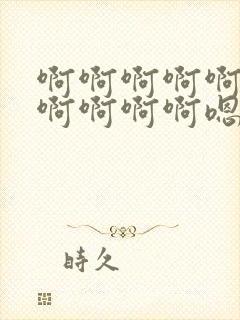 啊啊啊啊啊
啊啊啊啊嗯
時久